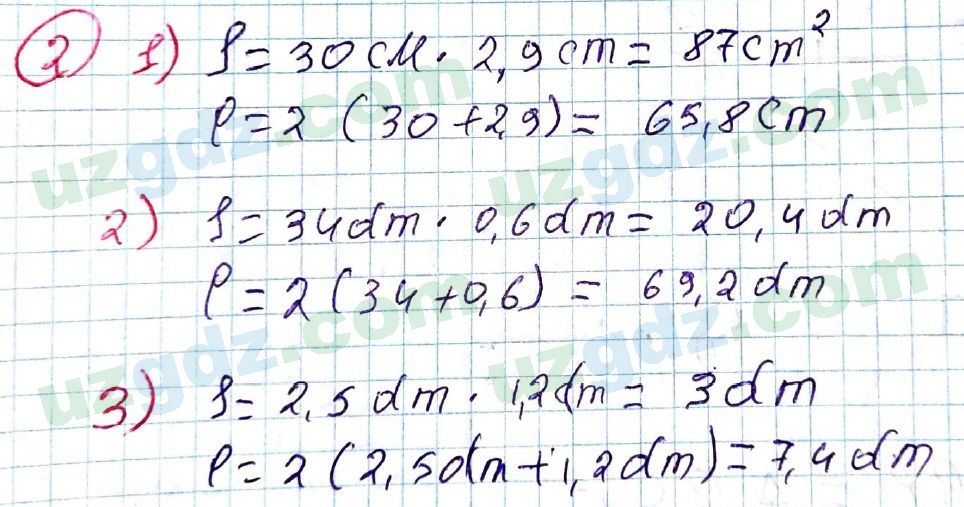 2 1) S = 30 cm · 2,9 cm = 87 cm²
P = 2 (30 + 2,9) = 65,8 cm
2) S = 34 dm · 0,6 dm = 20,4 dm
P = 2 (34 + 0,6) = 69,2 dm
3) S = 2,5 dm · 1,2 dm = 3 dm
P = 2 (2,5 dm + 1,2 dm) = 7,4 dm
uzgdz.com uzgdz.com
uzgdz.com uzgdz.com